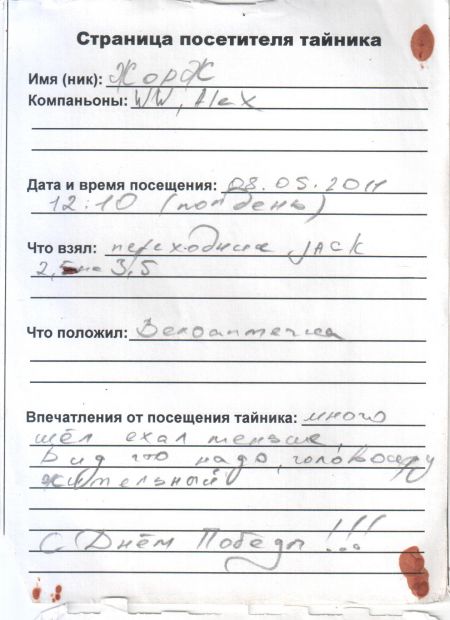 Страница посетителя тайника
Имя (ник): ЖорЖ
Компаньоны: WW, Alex
Дата и время посещения: 08.05.2011
12:10 (полдень)
Что взял: переходник JACK
2,5 на 3,5
Что положил: Велоаптечка
Впечатления от посещения тайника: много
шёл ехал меньше,
Вид что надо, головокру
жительный
С Днём Победы !!!